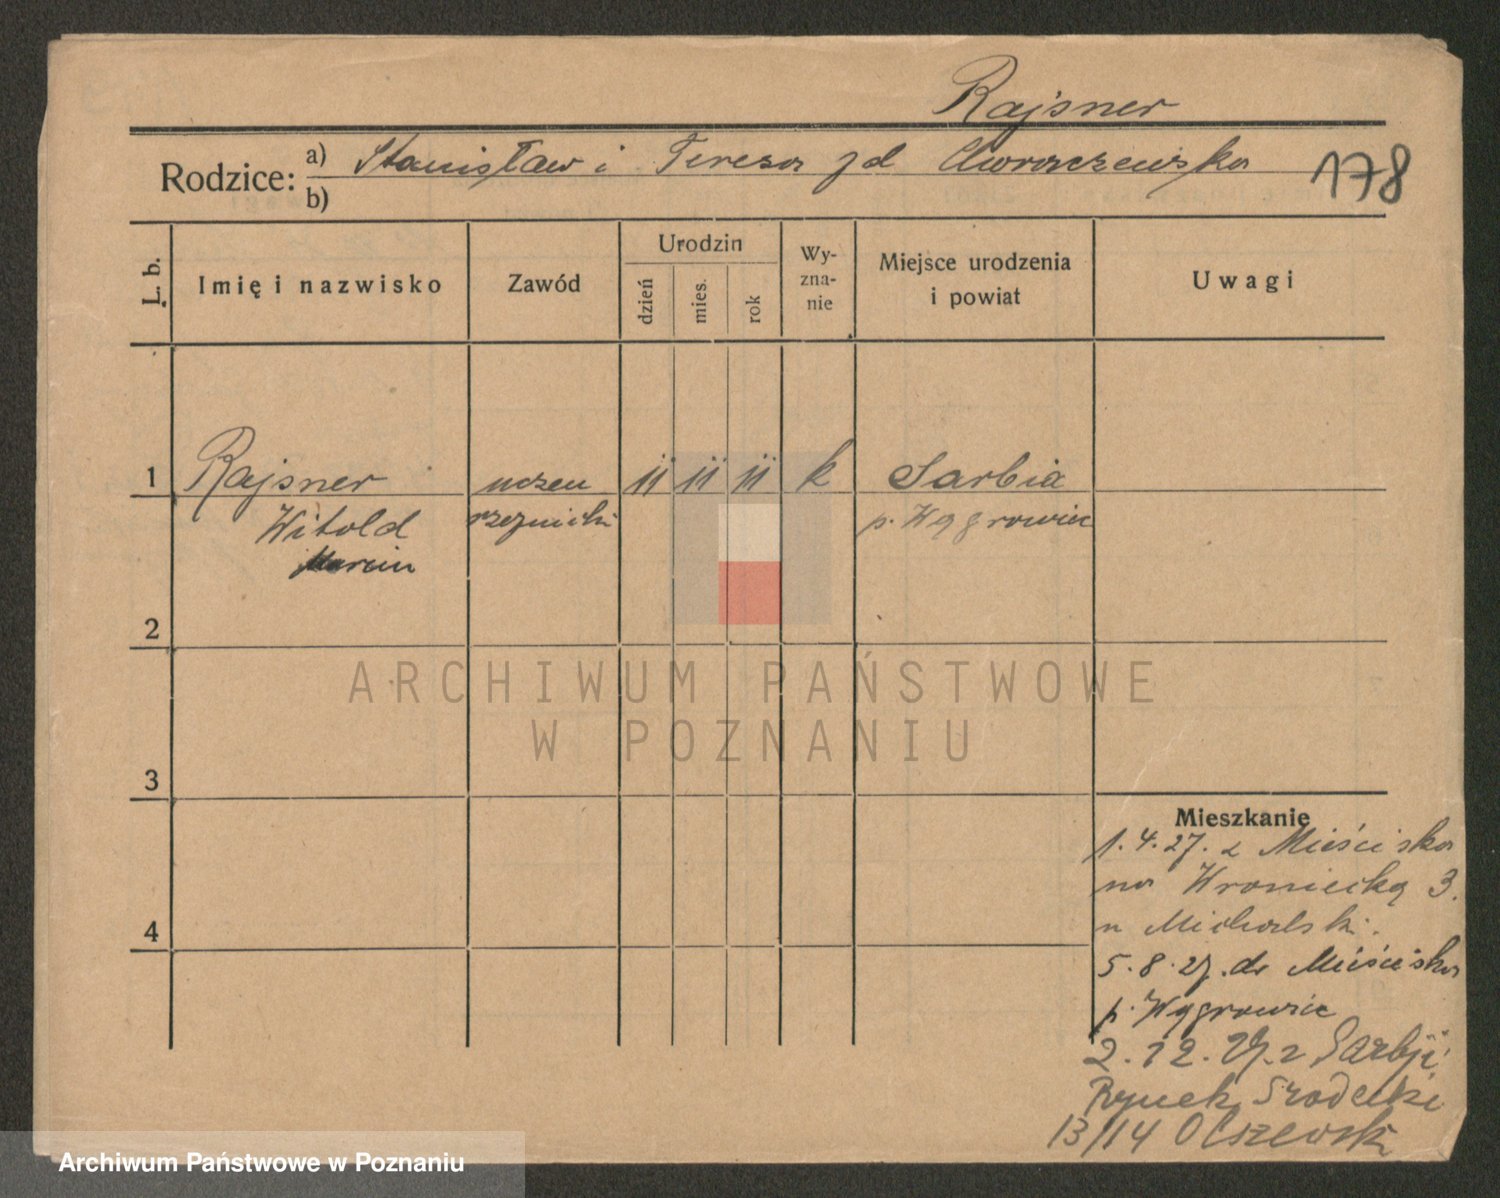 Rajsner
Rodzice: a) Stanisław i Teresa zd
b)
178
L. b.
Imię i nazwisko
Zawód
Urodzin
dzień
mies.
rok
Wy-
zna-
nie
Miejsce urodzenia
i powiat
Uwagi
1 Rajsner uczeń 11 11 11 k Sarbia
Witold rzeźnicki p. Wągrowiec
Marcin
2
3
4
ARCHIWUM PAŃSTWOWE
W POZNANIU
Mieszkanie
1.4.27. z Mieściska
na Wroniecką 3.
u Michalski.
5.8.27. do Mieściska
p. Wągrowiec
2.12.27. z Sarbji
Rynek Srodecki
13/14 Olszewski
Archiwum Państwowe w Poznaniu